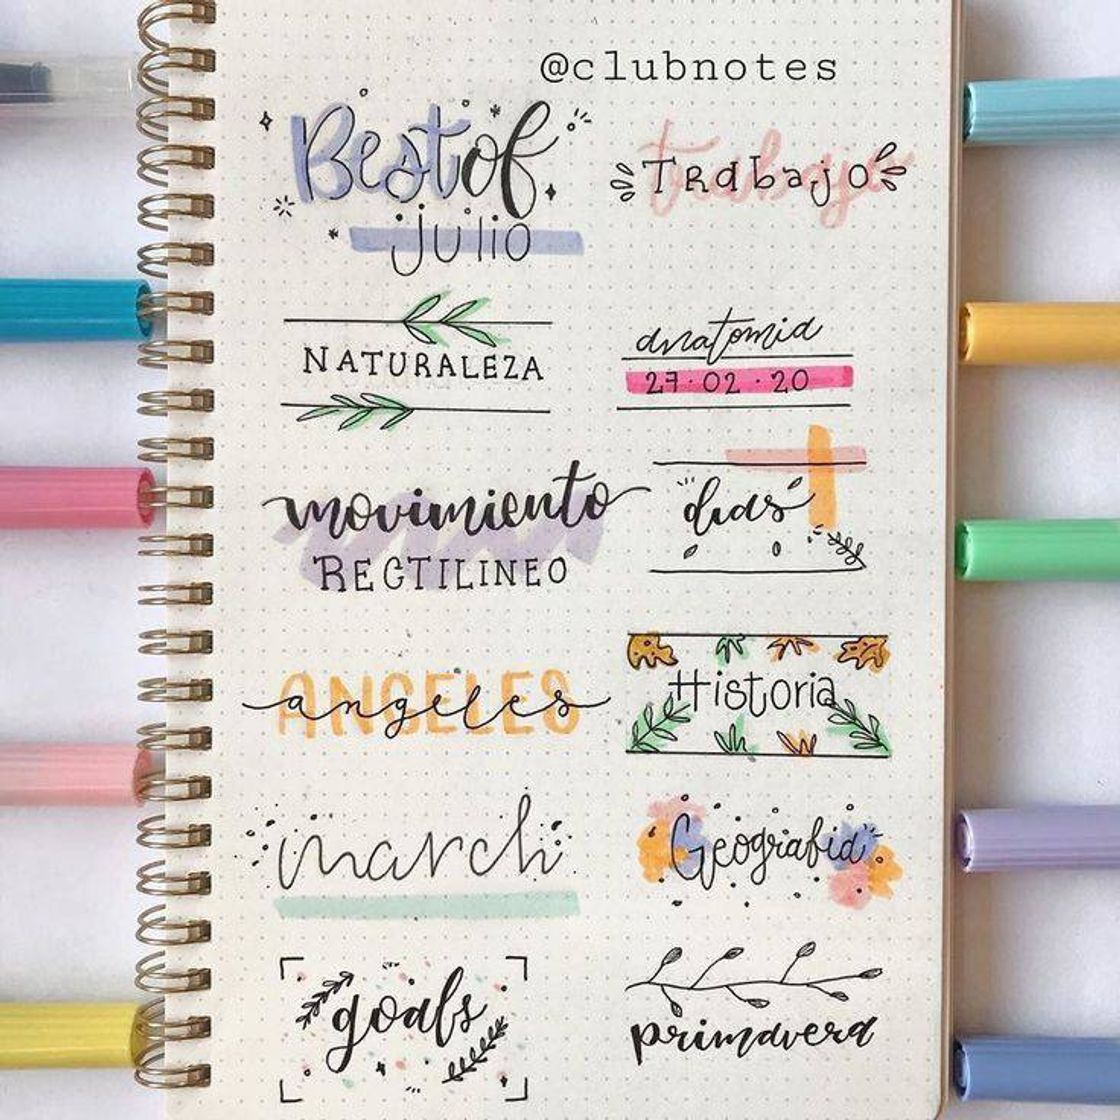 @clubnotes
Best of
julio
Trabajo
NATURALEZA
anatomia
27·02·20
movimiento
RECTILINEO
dias
ANGELES
angeles
Historia
march
Geografia
goals
primavera